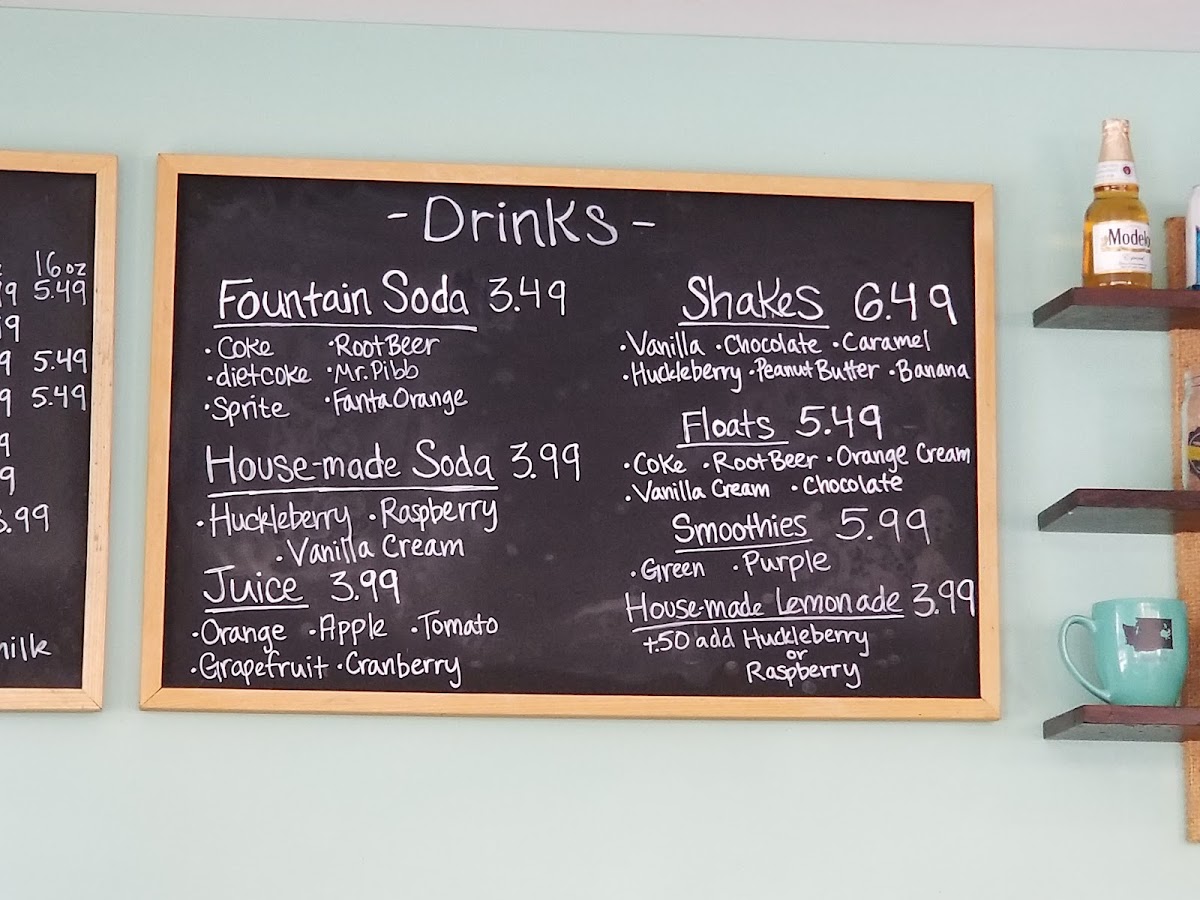 16oz
5.49
5.49
5.49
.99
milk
- Drinks -
Fountain Soda 3.49
·Coke ·Root Beer
·diet coke ·Mr. Pibb
·Sprite ·Fanta Orange
House-made Soda 3.99
·Huckleberry ·Raspberry
·Vanilla Cream
Juice 3.99
·Orange ·Apple ·Tomato
·Grapefruit ·Cranberry
Shakes 6.49
·Vanilla ·Chocolate ·Caramel
·Huckleberry ·Peanut Butter ·Banana
Floats 5.49
·Coke ·Root Beer ·Orange Cream
·Vanilla Cream ·Chocolate
Smoothies 5.99
·Green ·Purple
House-made Lemonade 3.99
+.50 add Huckleberry
or
Raspberry
Modelo